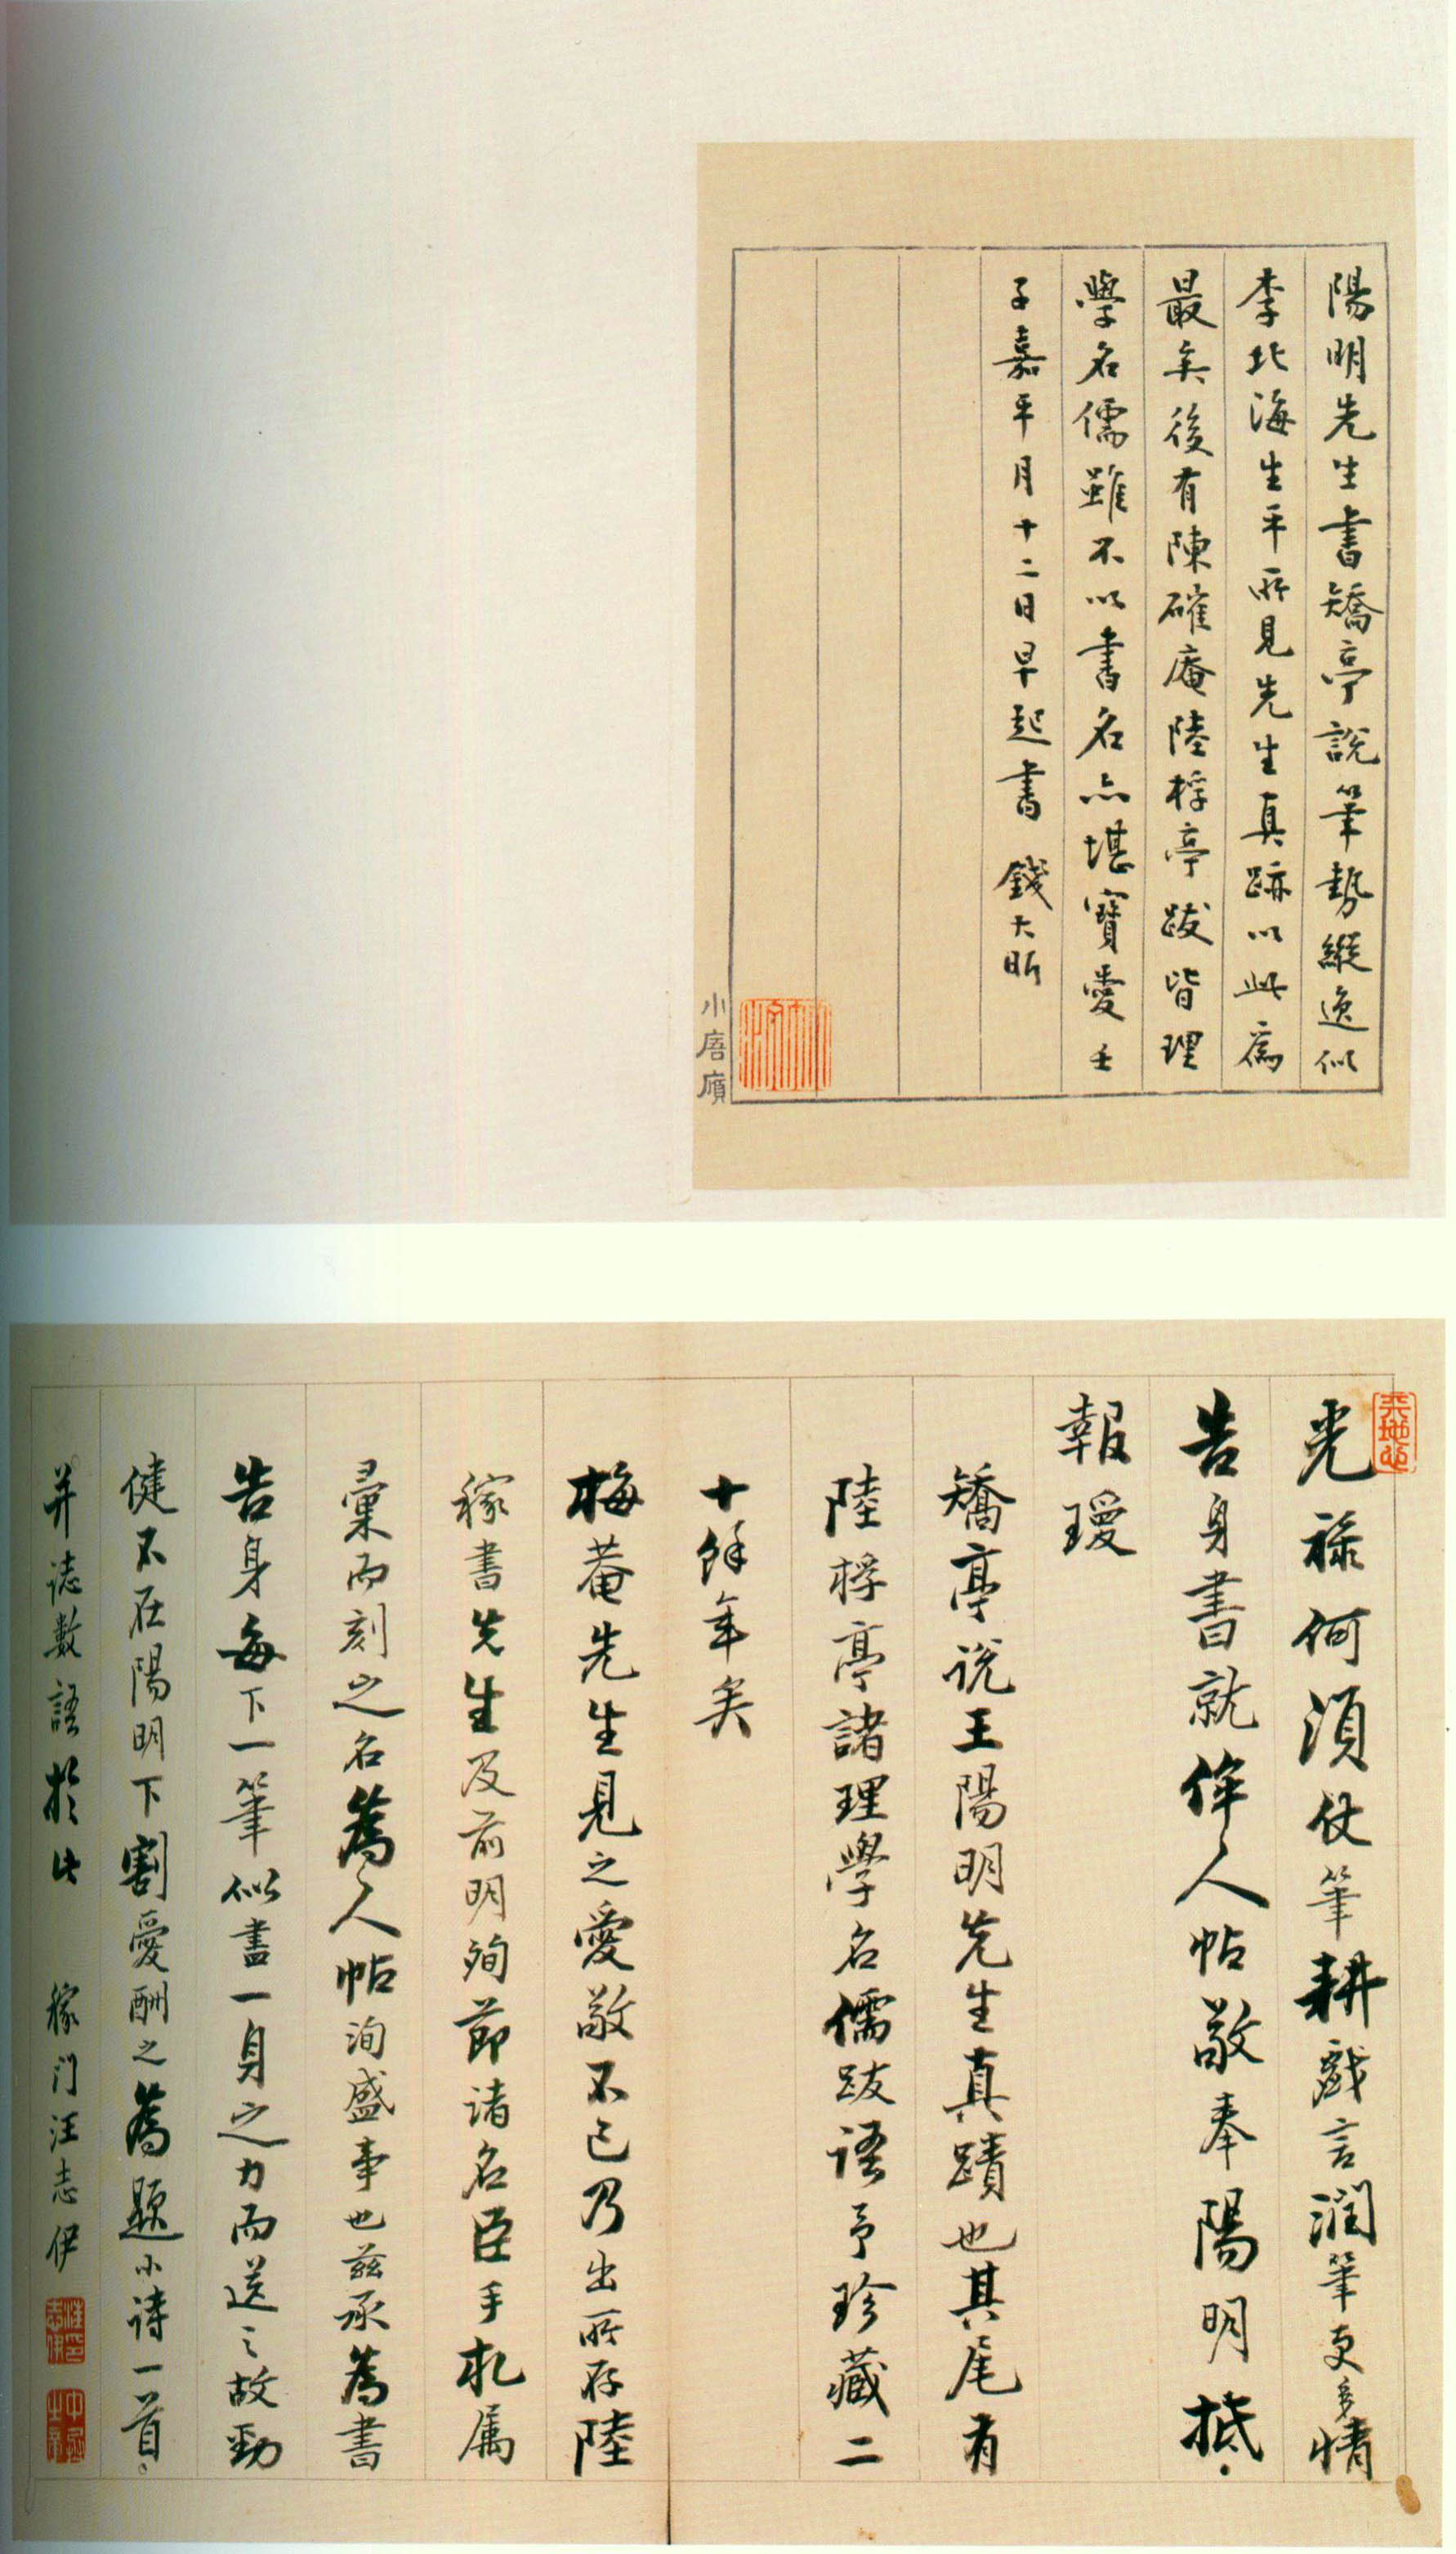 陽明先生書矯亭說筆勢縱逸似
李北海生平所見先生真跡以此為
最矣後有陳確庵陸桴亭跋皆理
學名儒雖不以書名亦堪寶愛壬
子嘉平月十二日早起書 錢大昕
小唐廎
光祿何須仗筆耕戲言潤筆更多情
告身書就侔人帖敬奉陽明抵
報瓊
矯亭說王陽明先生真蹟也其尾有
陸桴亭諸理學名儒跋語予珍藏二
十餘年矣
梅菴先生見之愛敬不已乃出所存陸
稼書先生及前明殉節諸名臣手札属
彙而刻之名為人帖洵盛事也茲承為書
告身每下一筆似盡一身之力而送之故勁
健不在陽明下割愛酬之為題小詩一首
并誌數語於此 稼門汪志伊
汪印志伊